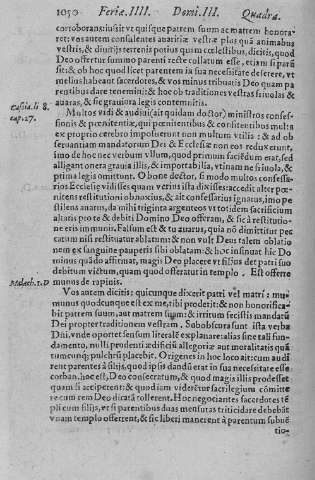 1050 Feriæ. IIII. Domi. III. Quadra.
corroborans: iussit vt quisque patrem suum ac matrem honora
ret: vos autem consulentes auaritiæ vestræ plus quã animabus
vestris, & diuitijs terrenis potius quàm cœlestibus, dicitis, quod
Deo offertur summo parenti recte collatum esse, etiam si paru̅
sit: & ob hoc quod licet parentem in sua necessitate deserere, vt
melius habeant sacerdotes, & vos minus tribuatis Deo quam pa
rentibus dare tenemini: & hoc ob traditiones vestras friuolas &
auaras, & sic grauiora legis contemnitis.
Multos vidi & audiui (ait quidam doctor) ministros confes-
Cassia. li. 8.
sionis & prælationis, qui pœnitentibus & consitentibus multa
cap. 27.
ex proprio cerebro imposuerunt non multum vtilia: & ad ob
seruantiam mandatorum Dei & Ecclesiæ non eos reduxerunt,
imo de hoc nec verbum vllum, quod primum faciẽdum erat, sed
alligant onera grauia illis, & importabilia, vtinam ne friuola, &
prima legis omittunt. O bone doctor, si modo multos confessa-
rios Ecclesię vidisses quam verius ista dixisses: accedit alter pœ-
nitens restitutioni obnoxius, & ait confessarius ignatus, imo pe
stilens auatus, da mihi triginta argenteos vt totidem sacrificium
altaris pro te & debiti Domino Deo offeram, & sic à restitutio-
ne eris immunis. Falsum est & tu auarus, quia nõ dimittitur pec
catum nisi restituatur ablatum: & non vult Deus talem oblatio
nem ex sanguine pauperis sibi oblatam: & hoc insinuat hic Do
minus quãdo affirmat, magis Deo placere vt filius det patri suo
debitum victum, quam quod offeratur in templo. Est offerre
Malach. 1. D
munus de rapinis.
Vos autem dicitis: quicunque dixerit patri vel matri: mu-
munus quodcunque est ex me, tibi proderit: & non honorifica-
bit patrem suum, aut matrem suam: & irritum fecistis mandatũ
Dei propter traditionem vestram. Subobscura sunt ista verba
Dni. vnde oportet sensum literalẽ explanare: alias sine tali fun-
damento, nulli prodenti ædificiũ allegoriæ aut moralitatis quã
tumcunq; pulchrũ placebit. Origenes in hoc loco ait: cum audi
rent parentes à filijs, quod ipsis dandũ erat in sua necessitate esse
corban. hoc est, Deo consecratum, & quod magis illis prodesset
quam si acciperent: & quod iam viderẽtur sacrilegium cõmitte
re cum rem Deo dicatã tollerent. Hoc negociantes sacerdotes tẽ
pli cum filijs, et si parentibus duas mensuras triticadare debebãt
vnam templo offerrent, & sic liberi manerent à parentum subuẽ
tio-